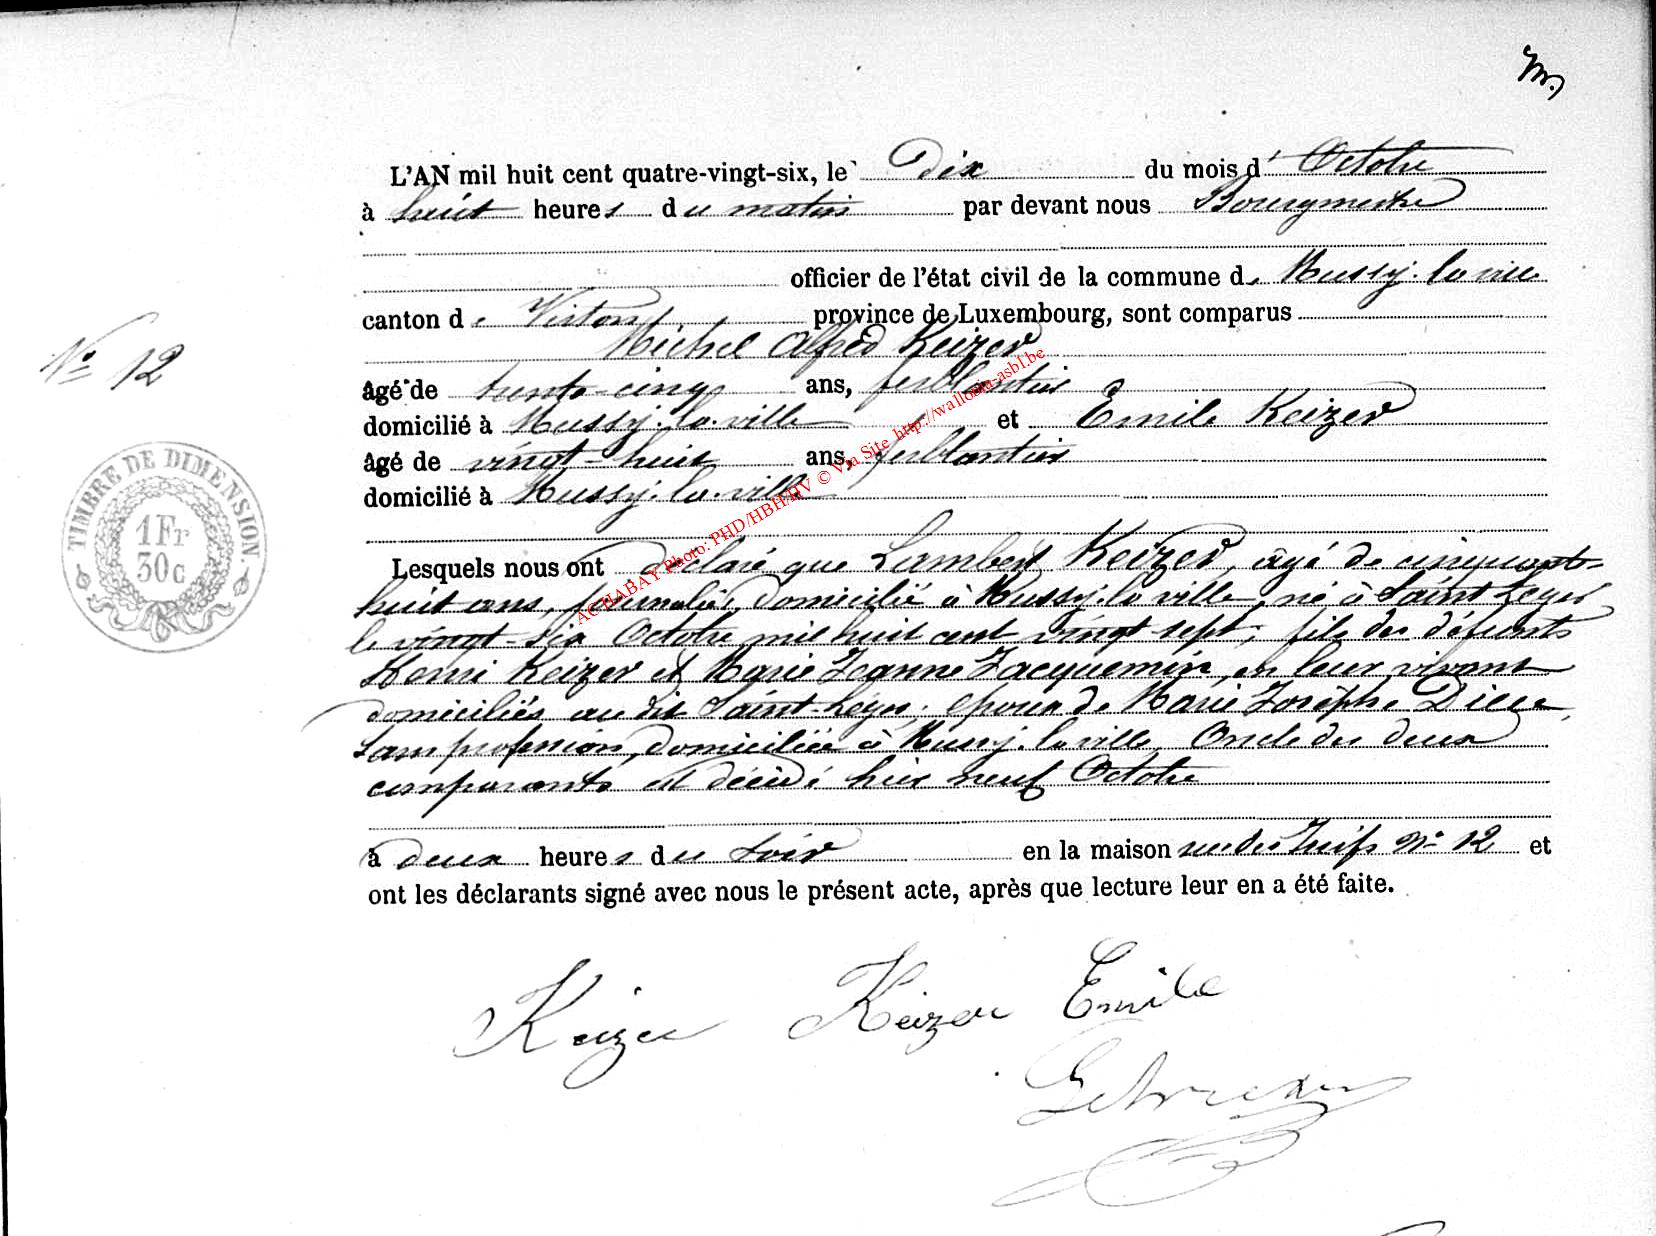 L'AN mil huit cent quatre-vingt-six, le Dix du mois d'Octobre
à huit heures du matin par devant nous Bourgmestre
officier de l'état civil de la commune de Mussy-la-ville
canton de Virton province de Luxembourg, sont comparus
Michel Alfred Keizer
N° 12
âgé de trente-cinq ans, ferblantier
domicilié à Mussy-la-ville et Emile Keizer
âgé de vingt-huit ans, ferblantier
domicilié à Mussy-la-ville
TIMBRE DE DIMENSION
1Fr
30c
ACHABAY Photo: PHD/HBH/HV © Via Site http://wallonia-asbl.be
Lesquels nous ont déclaré que Lambert Keizer, agé de cinquante-
huit ans, journalier, domicilié à Mussy-la-ville, né à Saint-Leger
le vingt-six Octobre mil huit cent vingt-sept, fils des défunts
Henri Keizer et Marie Jeanne Jacquemin, en leur vivant
domiciliés au dit Saint-Léger, époux de Marie Josèphe
sans profession, domiciliée à Mussy-la-ville, Oncle des deux
comparants est décédé hier neuf Octobre
à deux heures du soir en la maison rue des Juifs N° 12 et
ont les déclarants signé avec nous le présent acte, après que lecture leur en a été faite.
Keizer Keizer Emile